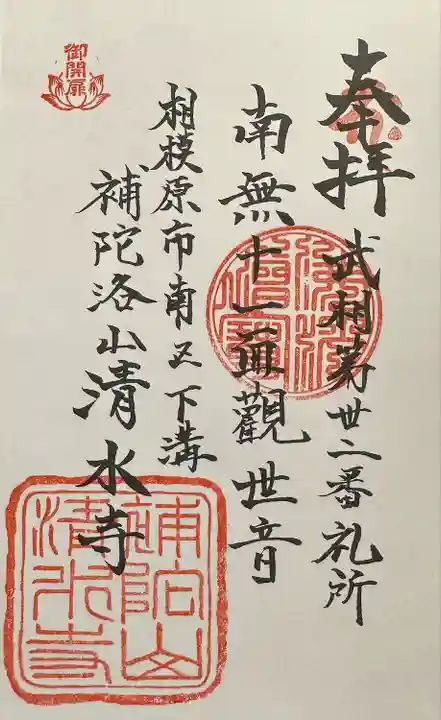 奉拝
武相第卅二番礼所
南無十一面觀世音
相模原市南区下溝
補陀洛山清水寺
御開扉
補陀山
清水寺